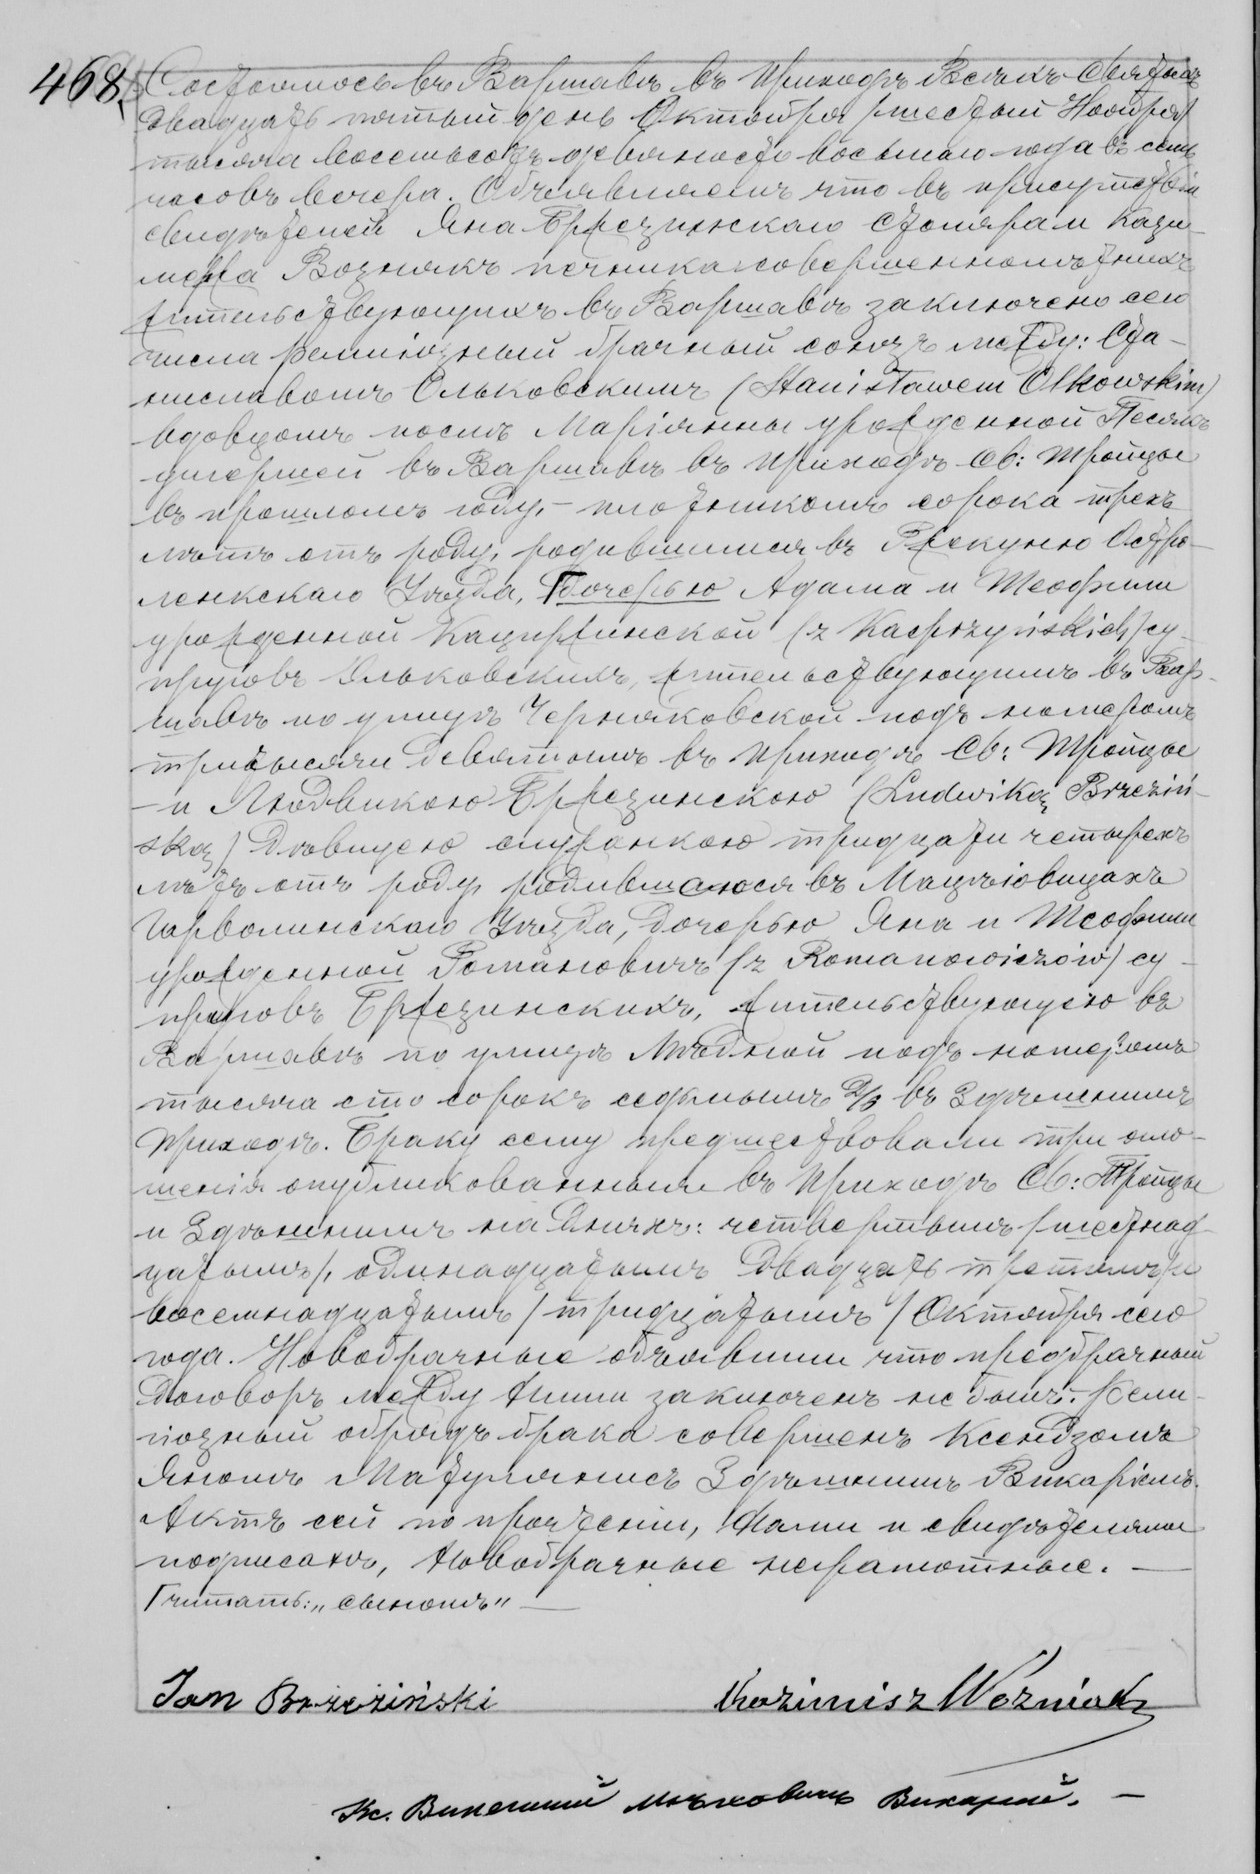 468.
Состоялось въ Варшавѣ въ приходѣ Всѣхъ Святыхъ
двадцать пятый день Октября /шестый Ноября/
тысяча восемьсотъ девяносто восьмаго года въ семь
часовъ вечера. Объявляемъ что въ присутствіи
свидѣтелей Яна Бржезинскаго столяра и Кази-
межа Вознякъ печника совершеннолѣтнихъ
жительствующихъ въ Варшавѣ заключено сего
числа религіозный брачный союзъ между: Ста-
ниславомъ Ольковскимъ (Stanisławem Olkowskim)
вдовцомъ послѣ Маріянны урожденной Песякъ
умершей въ Варшавѣ въ приходѣ Св: Тройцы
въ прошломъ году, – плотникомъ сорока трехъ
лѣтъ отъ роду, родившимся въ Ржекуню Остро-
ленкскаго Уѣзда, Г дочерью Адама и Теофили
урожденной Кацпржинской (z Kacprzyńskich) су-
пруговъ Ольковскихъ, жительствующимъ въ Вар-
шавѣ по улицѣ Черняковской подъ номеромъ
тритысячи девятымъ въ приходѣ Св: Тройцы
– и Людвикою Бржезинскою (Ludwiką Brzeziń-
ską) дѣвицею служанкою тридцати четырехъ
лѣтъ отъ роду, родившаюся въ Мацѣіовицахъ
Гарволинскаго Уѣзда, дочерью Яна и Теофили
урожденной Романовичъ (z Romanowiczów) су-
пруговъ Бржезинскихъ, жительствующею въ
Варшавѣ по улицѣ Мѣдной подъ номеромъ
тысяча сто сорокъ седьмымъ въ здѣшнимъ
приходѣ. Браку сему предшествовали три огло-
шенія опубликованныя въ приходѣ Св: Тройцы
и здѣшнимъ на дняхъ: четвертымъ /шестнад-
цатымъ/, одинадцатымъ двадцать третимъ/и
восемнадцатымъ /тридцатымъ/ Октября сего
года. Новобрачные объявили что предбрачный
договоръ между ними заключенъ не былъ. Рели-
гіозный обрядъ брака совершенъ Ксендзомъ
Яномъ Матулянисъ здѣшнимъ Викаріемъ.
Актъ сей по прочтеніи, Нами и свидѣтелями
подписанъ, Новобрачные неграмотные. —
Г читать: „сыномъ" —
Jan Brzeziński Kazimisz Wozniak
Кс. Викентій Мѣховичъ Викарій. —